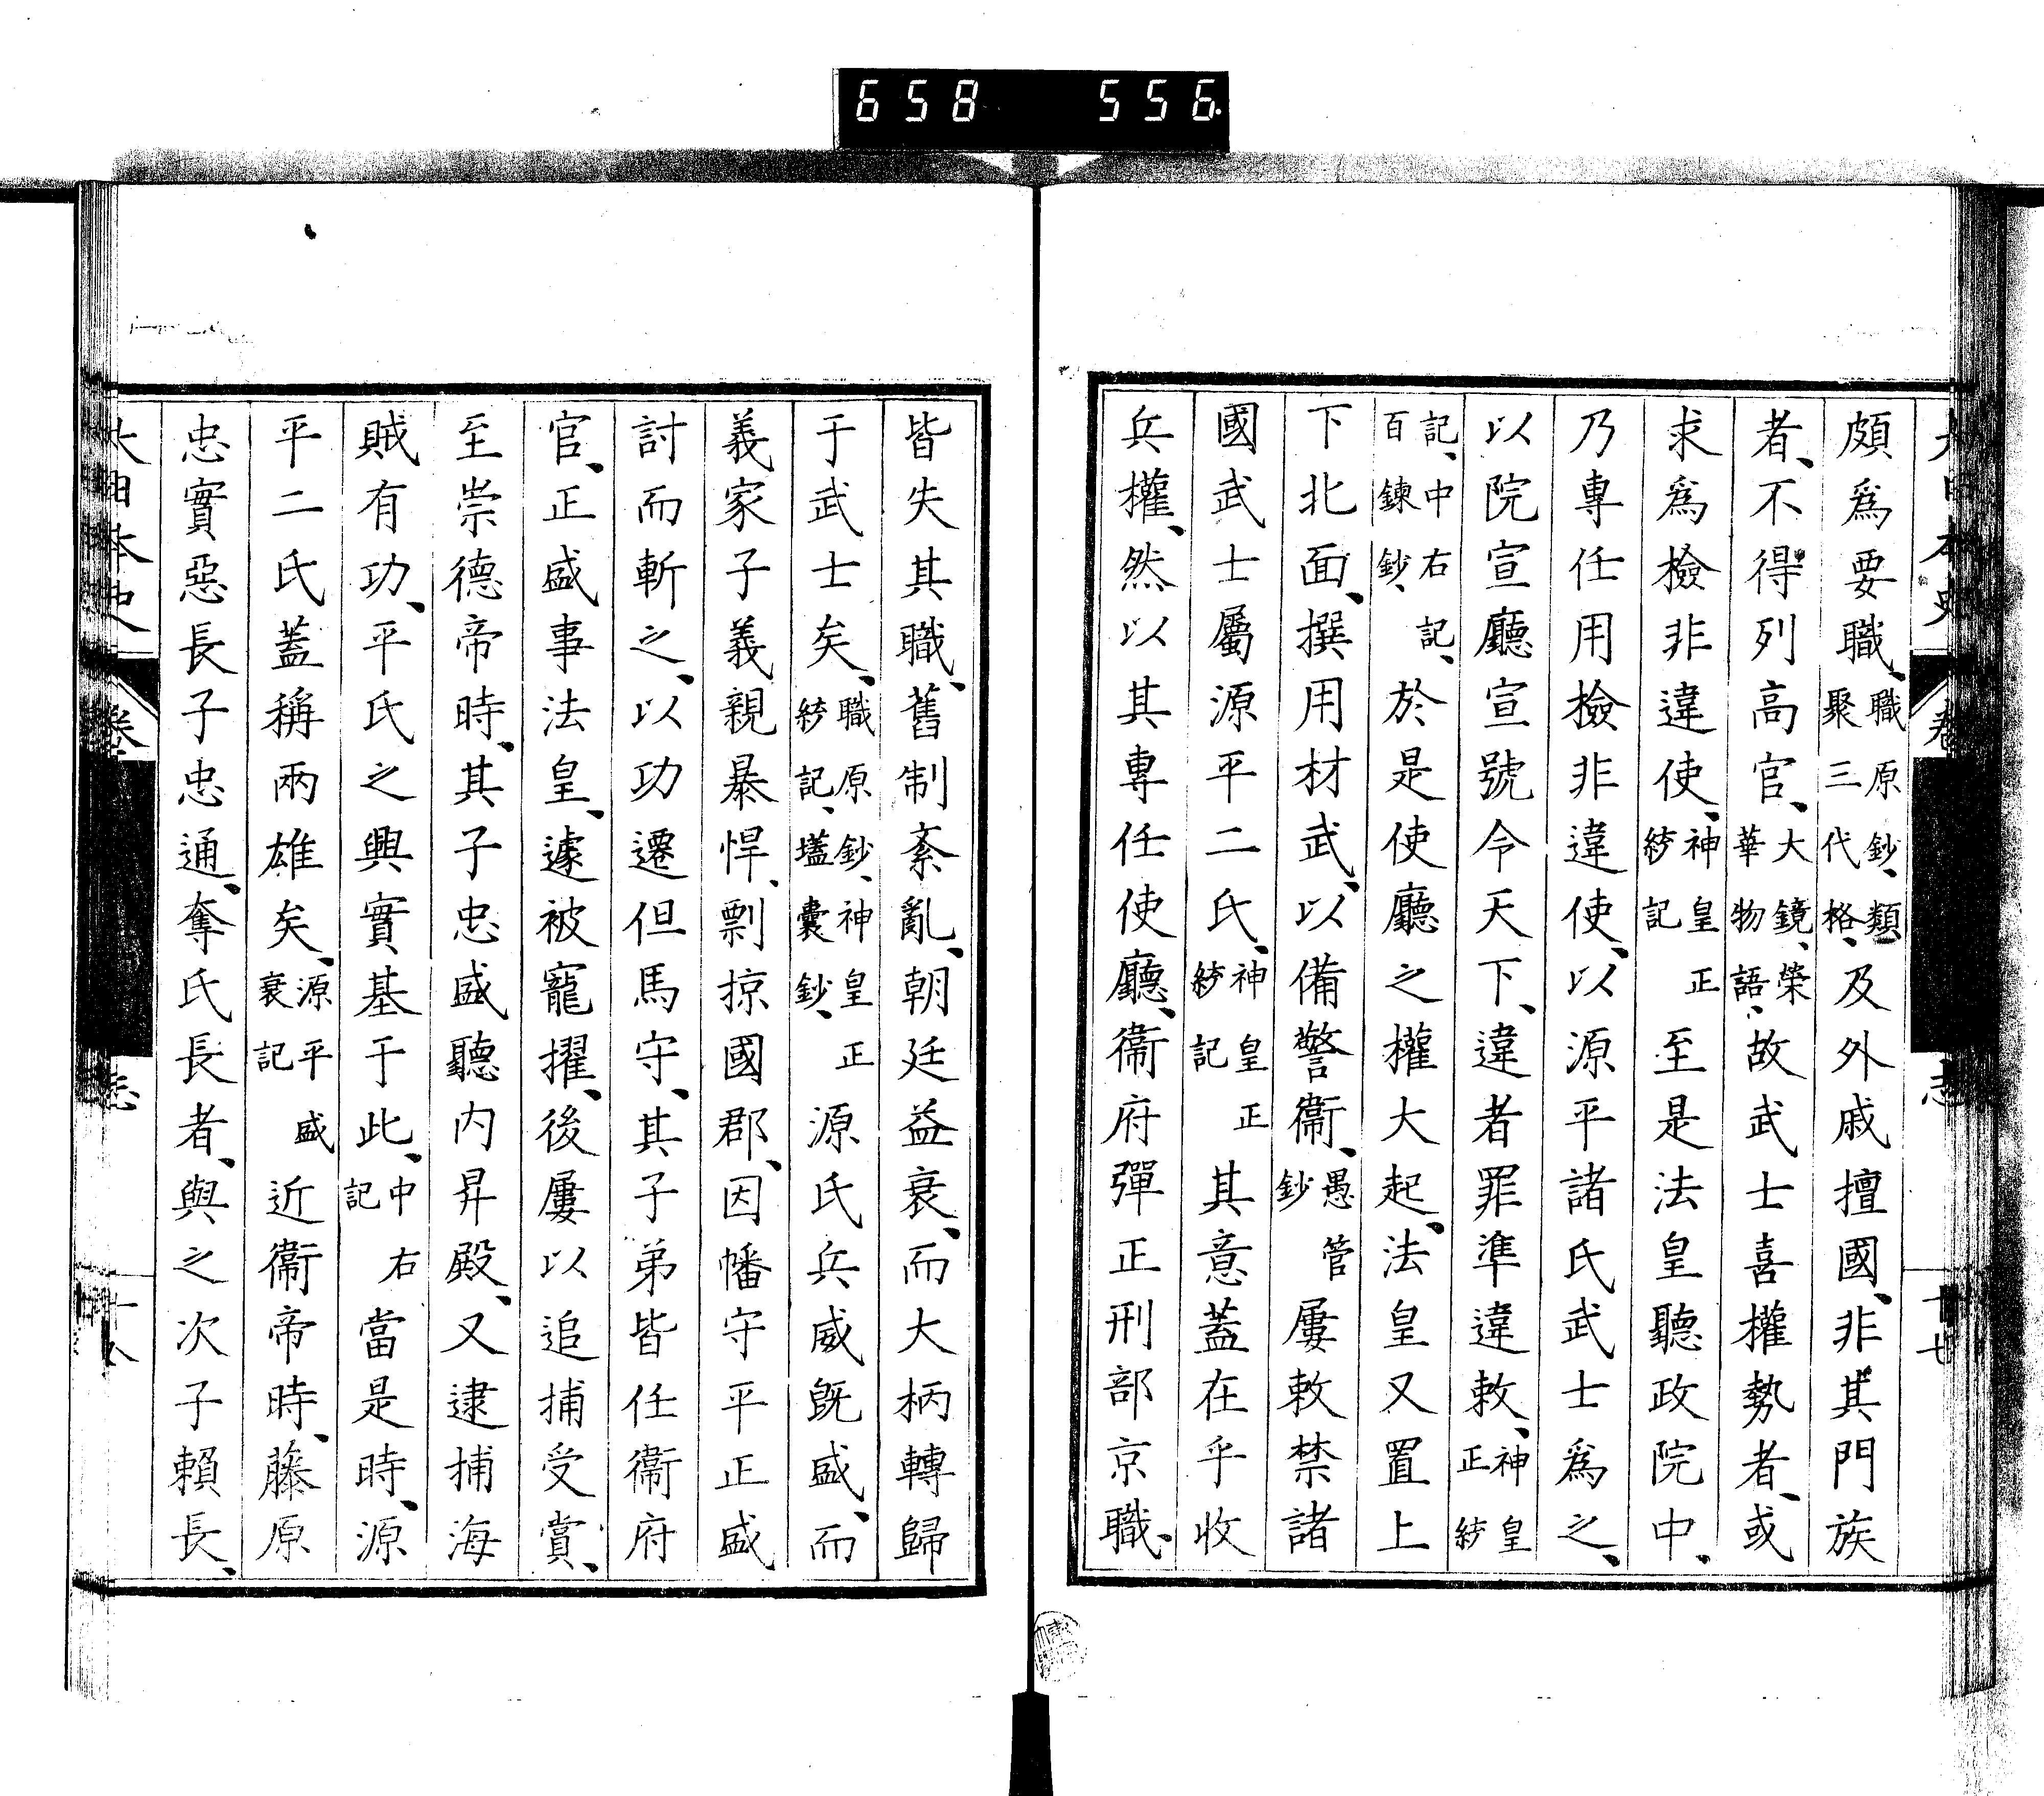 658 556
大日本史 卷 志 十七
頗爲要職、職原鈔、類聚三代格、及外戚擅國、非其門族
者、不得列高官、大鏡、榮華物語、故武士喜權勢者、或
求爲檢非違使、神皇正統記至是法皇聽政院中、
乃專任用檢非違使、以源平諸氏武士爲之、
以院宣廳宣號令天下、違者罪準違敕、神皇正統
記、中右記、百鍊鈔、於是使廳之權大起、法皇又置上
下北面、撰用材武、以備警衞、愚管鈔屢敕禁諸
國武士屬源平二氏、神皇正統記其意蓋在乎收
兵權、然以其專任使廳、衞府彈正刑部京職、
皆失其職、舊制紊亂、朝廷益衰、而大柄轉歸
于武士矣、職原鈔、神皇正統記、壒囊鈔、源氏兵威既盛、而
義家子義親暴悍、剽掠國郡、因幡守平正盛
討而斬之、以功遷但馬守、其子弟皆任衞府
官、正盛事法皇、遽被寵擢、後屢以追捕受賞、
至崇德帝時、其子忠盛聽內昇殿、又逮捕海
賊有功、平氏之興實基于此、中右記當是時、源
平二氏蓋稱兩雄矣、源平盛衰記近衞帝時、藤原
忠實惡長子忠通、奪氏長者、與之次子賴長、
大日本史 卷 志 十八